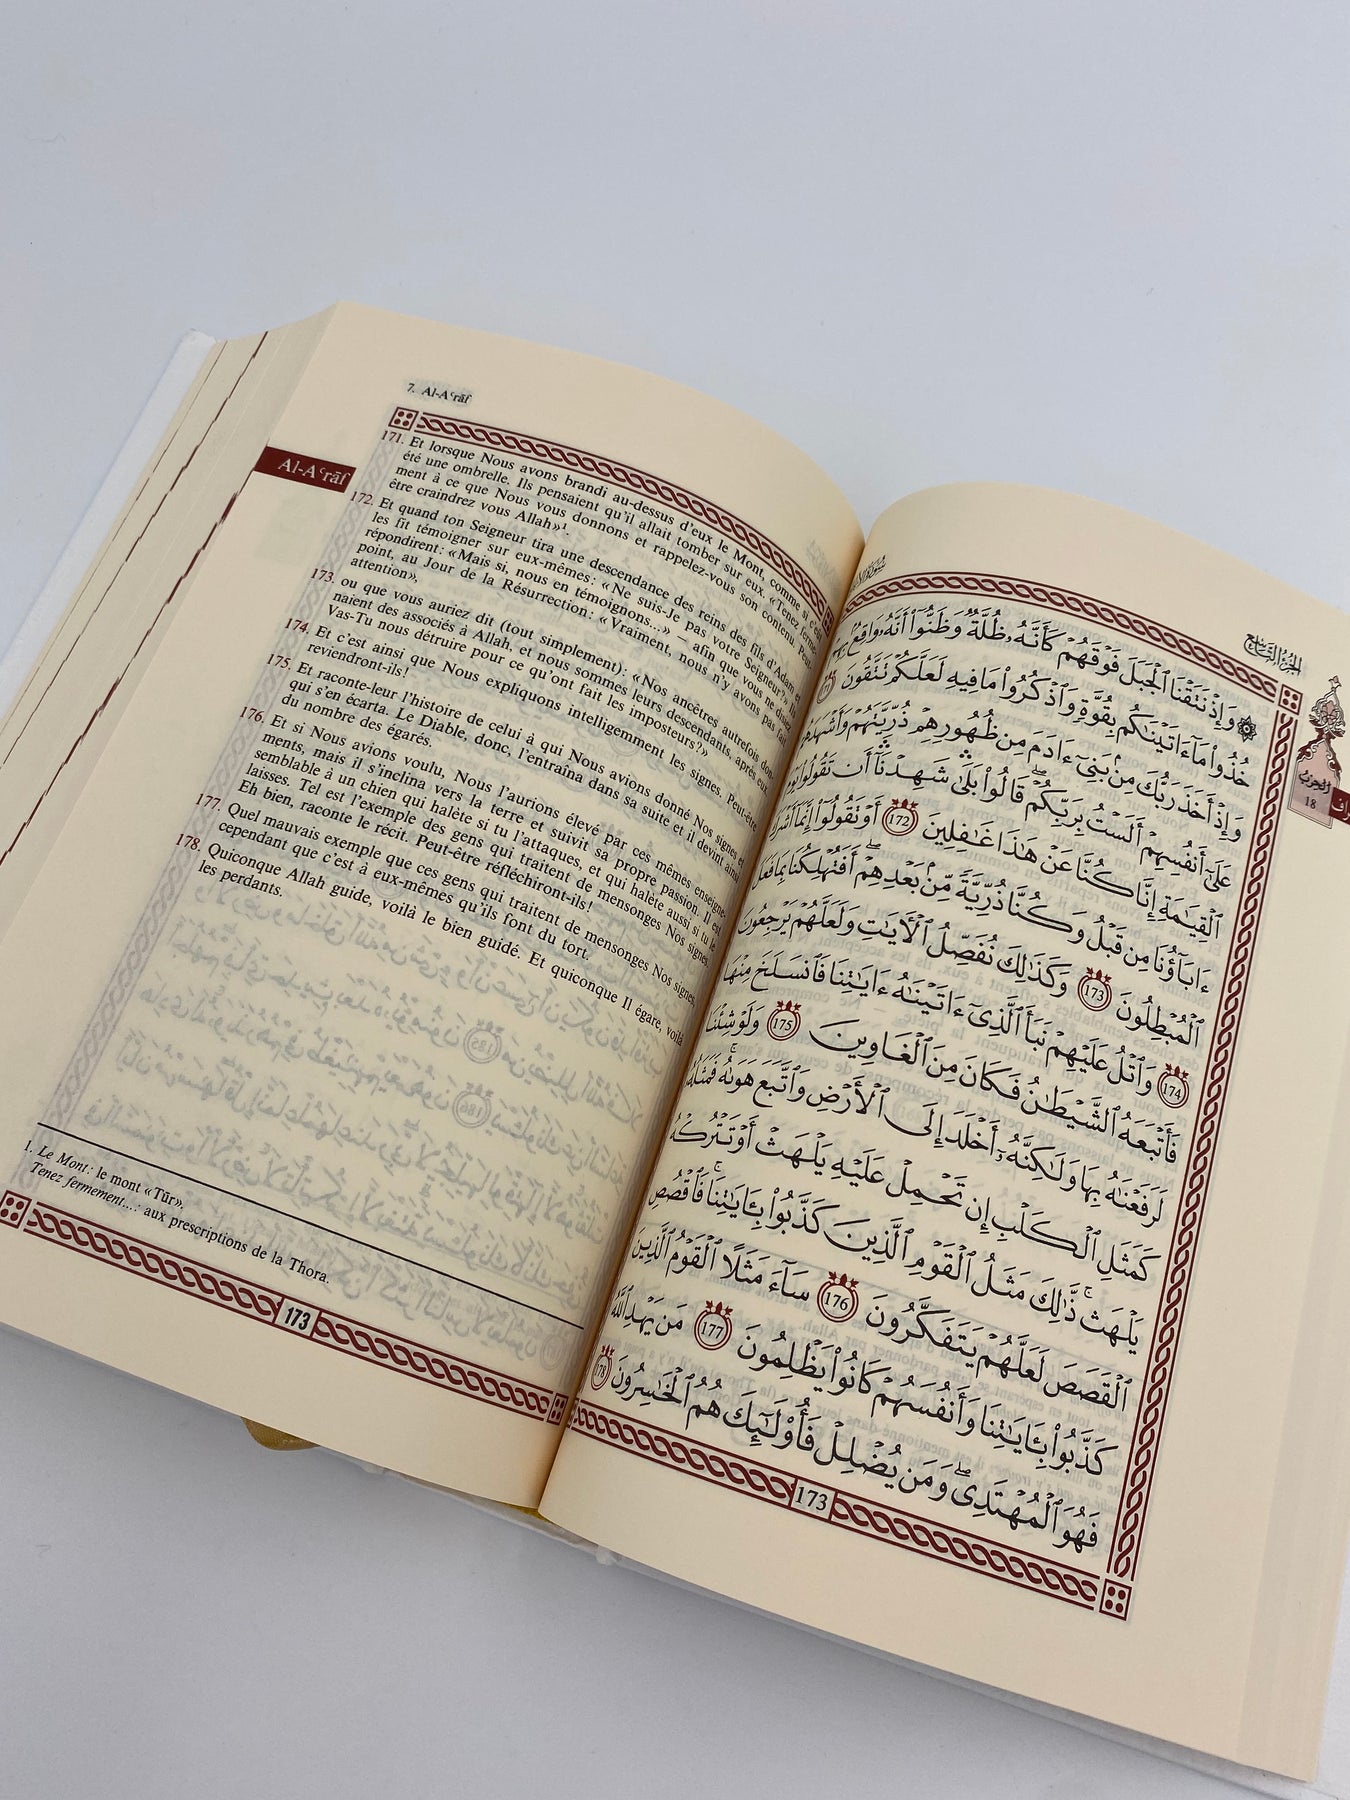 7. Al-Aʿrāf
Al-Aʿrāf
171. Et lorsque Nous avons brandi au-dessus d'eux le Mont, comme si c'eût
été une ombrelle. Ils pensaient qu'il allait tomber sur eux. «Tenez ferme-
ment à ce que Nous vous donnons et rappelez-vous son contenu. Peut-
être craindrez vous Allah»¹.
172. Et quand ton Seigneur tira une descendance des reins des fils d'Adam et
les fit témoigner sur eux-mêmes: «Ne suis-Je pas votre Seigneur?» Ils
répondirent: «Mais si, nous en témoignons...» – afin que vous ne disiez
point, au Jour de la Résurrection: «Vraiment, nous n'y avons pas fait
attention»,
173. ou que vous auriez dit (tout simplement): «Nos ancêtres autrefois don-
naient des associés à Allah, et nous sommes leurs descendants, après eux.
Vas-Tu nous détruire pour ce qu'ont fait les imposteurs?»
174. Et c'est ainsi que Nous expliquons intelligemment les signes. Peut-être
reviendront-ils!
175. Et raconte-leur l'histoire de celui à qui Nous avions donné Nos signes et
qui s'en écarta. Le Diable, donc, l'entraîna dans sa suite et il devint ainsi
du nombre des égarés.
176. Et si Nous avions voulu, Nous l'aurions élevé par ces mêmes enseigne-
ments, mais il s'inclina vers la terre et suivit sa propre passion. Il est
semblable à un chien qui halète si tu l'attaques, et qui halète aussi si tu le
laisses. Tel est l'exemple des gens qui traitent de mensonges Nos signes.
Eh bien, raconte le récit. Peut-être réfléchiront-ils!
177. Quel mauvais exemple que ces gens qui traitent de mensonges Nos signes,
cependant que c'est à eux-mêmes qu'ils font du tort.
178. Quiconque Allah guide, voilà le bien guidé. Et quiconque Il égare, voilà
les perdants.
1. Le Mont: le mont «Tūr».
Tenez fermement...: aux prescriptions de la Thora.
173
الجزء التاسع
الحزب
18
۞ وَإِذْ نَتَقْنَا ٱلْجَبَلَ فَوْقَهُمْ كَأَنَّهُۥ ظُلَّةٌ وَظَنُّوٓا۟ أَنَّهُۥ وَاقِعٌۢ بِهِمْ
خُذُوا۟ مَآ ءَاتَيْنَٰكُم بِقُوَّةٍ وَٱذْكُرُوا۟ مَا فِيهِ لَعَلَّكُمْ تَتَّقُونَ 171
وَإِذْ أَخَذَ رَبُّكَ مِنۢ بَنِىٓ ءَادَمَ مِن ظُهُورِهِمْ ذُرِّيَّتَهُمْ وَأَشْهَدَهُمْ
عَلَىٰٓ أَنفُسِهِمْ أَلَسْتُ بِرَبِّكُمْ ۖ قَالُوا۟ بَلَىٰ ۛ شَهِدْنَآ ۛ أَن تَقُولُوا۟ يَوْمَ
ٱلْقِيَٰمَةِ إِنَّا كُنَّا عَنْ هَٰذَا غَٰفِلِينَ 172 أَوْ تَقُولُوٓا۟ إِنَّمَآ أَشْرَكَ
ءَابَآؤُنَا مِن قَبْلُ وَكُنَّا ذُرِّيَّةً مِّنۢ بَعْدِهِمْ ۖ أَفَتُهْلِكُنَا بِمَا فَعَلَ
ٱلْمُبْطِلُونَ 173 وَكَذَٰلِكَ نُفَصِّلُ ٱلْءَايَٰتِ وَلَعَلَّهُمْ يَرْجِعُونَ
174 وَٱتْلُ عَلَيْهِمْ نَبَأَ ٱلَّذِىٓ ءَاتَيْنَٰهُ ءَايَٰتِنَا فَٱنسَلَخَ مِنْهَا
فَأَتْبَعَهُ ٱلشَّيْطَٰنُ فَكَانَ مِنَ ٱلْغَاوِينَ 175 وَلَوْ شِئْنَا
لَرَفَعْنَٰهُ بِهَا وَلَٰكِنَّهُۥٓ أَخْلَدَ إِلَى ٱلْأَرْضِ وَٱتَّبَعَ هَوَىٰهُ ۚ فَمَثَلُهُۥ
كَمَثَلِ ٱلْكَلْبِ إِن تَحْمِلْ عَلَيْهِ يَلْهَثْ أَوْ تَتْرُكْهُ
يَلْهَث ۚ ذَّٰلِكَ مَثَلُ ٱلْقَوْمِ ٱلَّذِينَ كَذَّبُوا۟ بِـَٔايَٰتِنَا ۚ فَٱقْصُصِ
ٱلْقَصَصَ لَعَلَّهُمْ يَتَفَكَّرُونَ 176 سَآءَ مَثَلًا ٱلْقَوْمُ ٱلَّذِينَ
كَذَّبُوا۟ بِـَٔايَٰتِنَا وَأَنفُسَهُمْ كَانُوا۟ يَظْلِمُونَ 177 مَن يَهْدِ ٱللَّهُ
فَهُوَ ٱلْمُهْتَدِى ۖ وَمَن يُضْلِلْ فَأُو۟لَٰٓئِكَ هُمُ ٱلْخَٰسِرُونَ 178
173